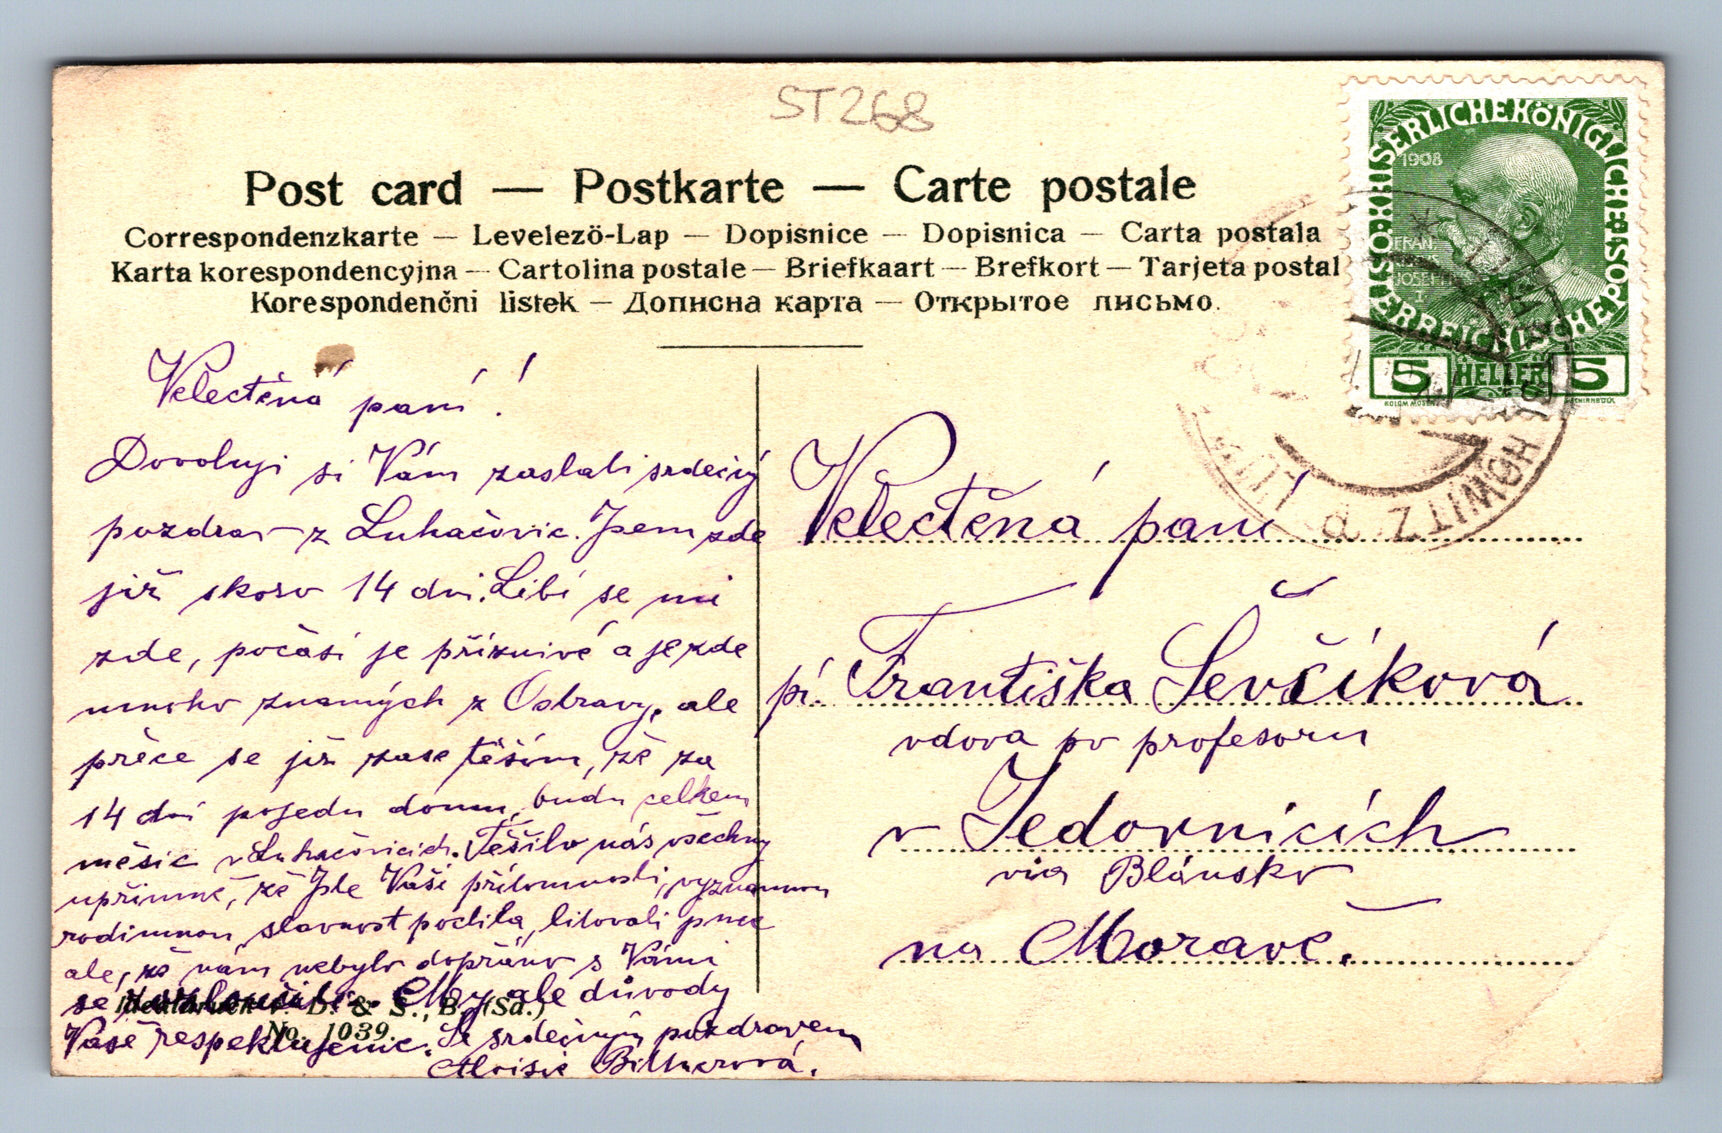 ST268
Post card — Postkarte — Carte postale
Correspondenzkarte — Levelezö-Lap — Dopisnice — Dopisnica — Carta postala
Karta korespondencyjna — Cartolina postale — Briefkaart — Brefkort — Tarjeta postal
Korespondenčni listek — Дописна карта — Открытое письмо.
KAISERLICHE KÖNIGLICHE ÖSTERREICHISCHE POST
1908
FRANZ
JOSEPH
I
5 HELLER 5
KOLOM. MOSER
LUHATSCHOWITZ
LUH
Velectěná paní!
Dovoluji si Vám zaslati srdečný
pozdrav z Luhačovic. Jsem zde
již skoro 14 dní. Líbí se mi
zde, počasí je příznivé a je zde
mnoho známých z Ostravy, ale
přece se již zase těším, že za
14 dní pojedu domu, budu celkem
měsíc v Luhačovicích. Těšilo nás všechny
upřímně, že jste Vaší přítomností, významnou
rodinnou slavnost poctila, litovali jsme
ale, že nám nebylo dopřáno s Vámi
se My ale důvody
Vaše respektujeme. Se srdečným pozdravem
Aloisie
D. & S., B. (Sa.)
No. 1039.
Velectěná paní
pí. Františka Ševčíková
vdova po profesoru
v Jedovnicích
via Blánsko
na Moravě.